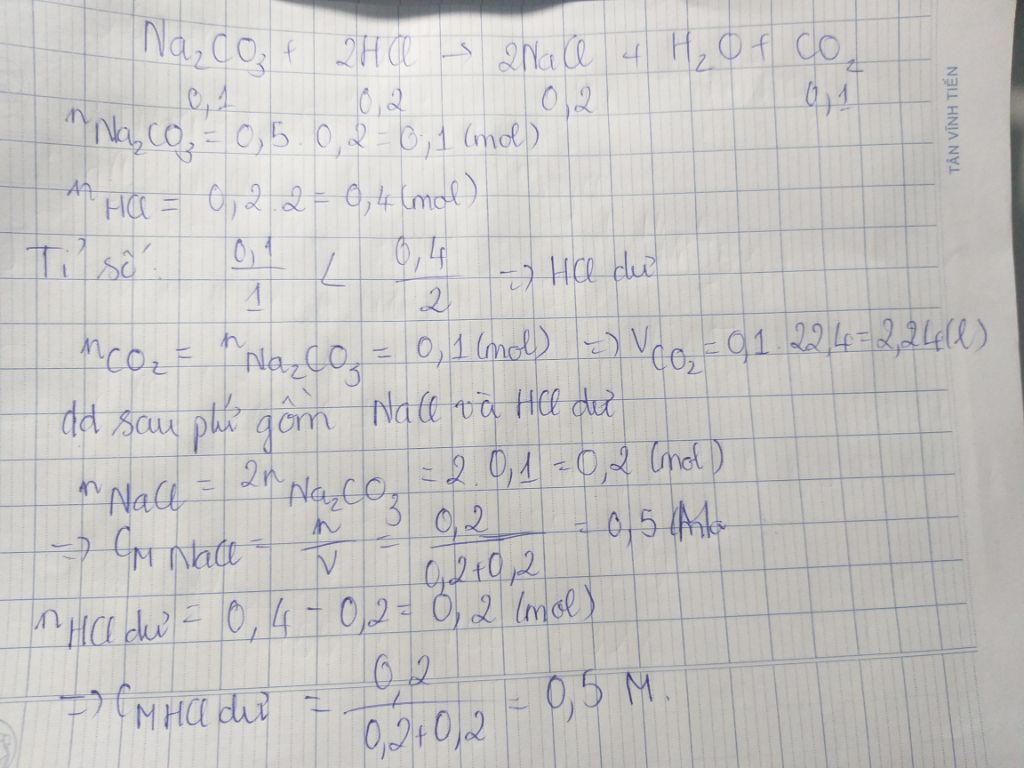 Na₂CO₃ + 2HCl → 2NaCl + H₂O + CO₂
0,1 0,2 0,2 0,1
nNa₂CO₃ = 0,5 . 0,2 = 0,1 (mol)
nHCl = 0,2 . 2 = 0,4 (mol)
Tỉ số: 0,1/1 < 0,4/2 => HCl dư
nCO₂ = nNa₂CO₃ = 0,1 (mol) => VCO₂ = 0,1 . 22,4 = 2,24 (l)
dd sau pứ gồm NaCl và HCl dư
nNaCl = 2nNa₂CO₃ = 2 . 0,1 = 0,2 (mol)
=> CM NaCl = n/V = 0,2/0,2+0,2 = 0,5 M
nHCl dư = 0,4 - 0,2 = 0,2 (mol)
=> CM HCl dư = 0,2/0,2+0,2 = 0,5 M.
TÂN VĨNH TIẾN